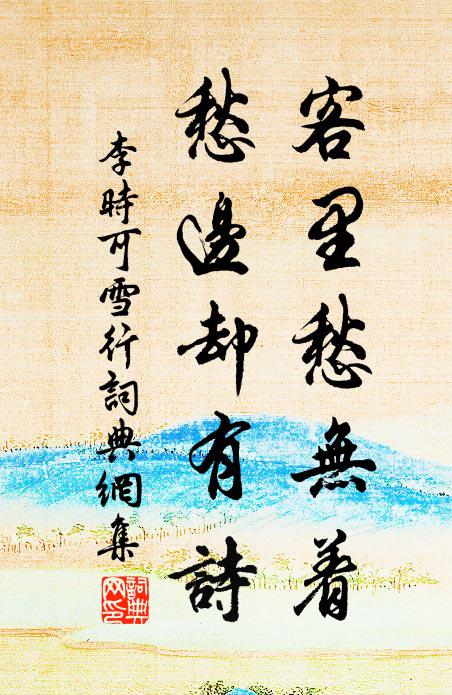 客里愁無着
愁邊却有詩
李時可雪行詞典網集